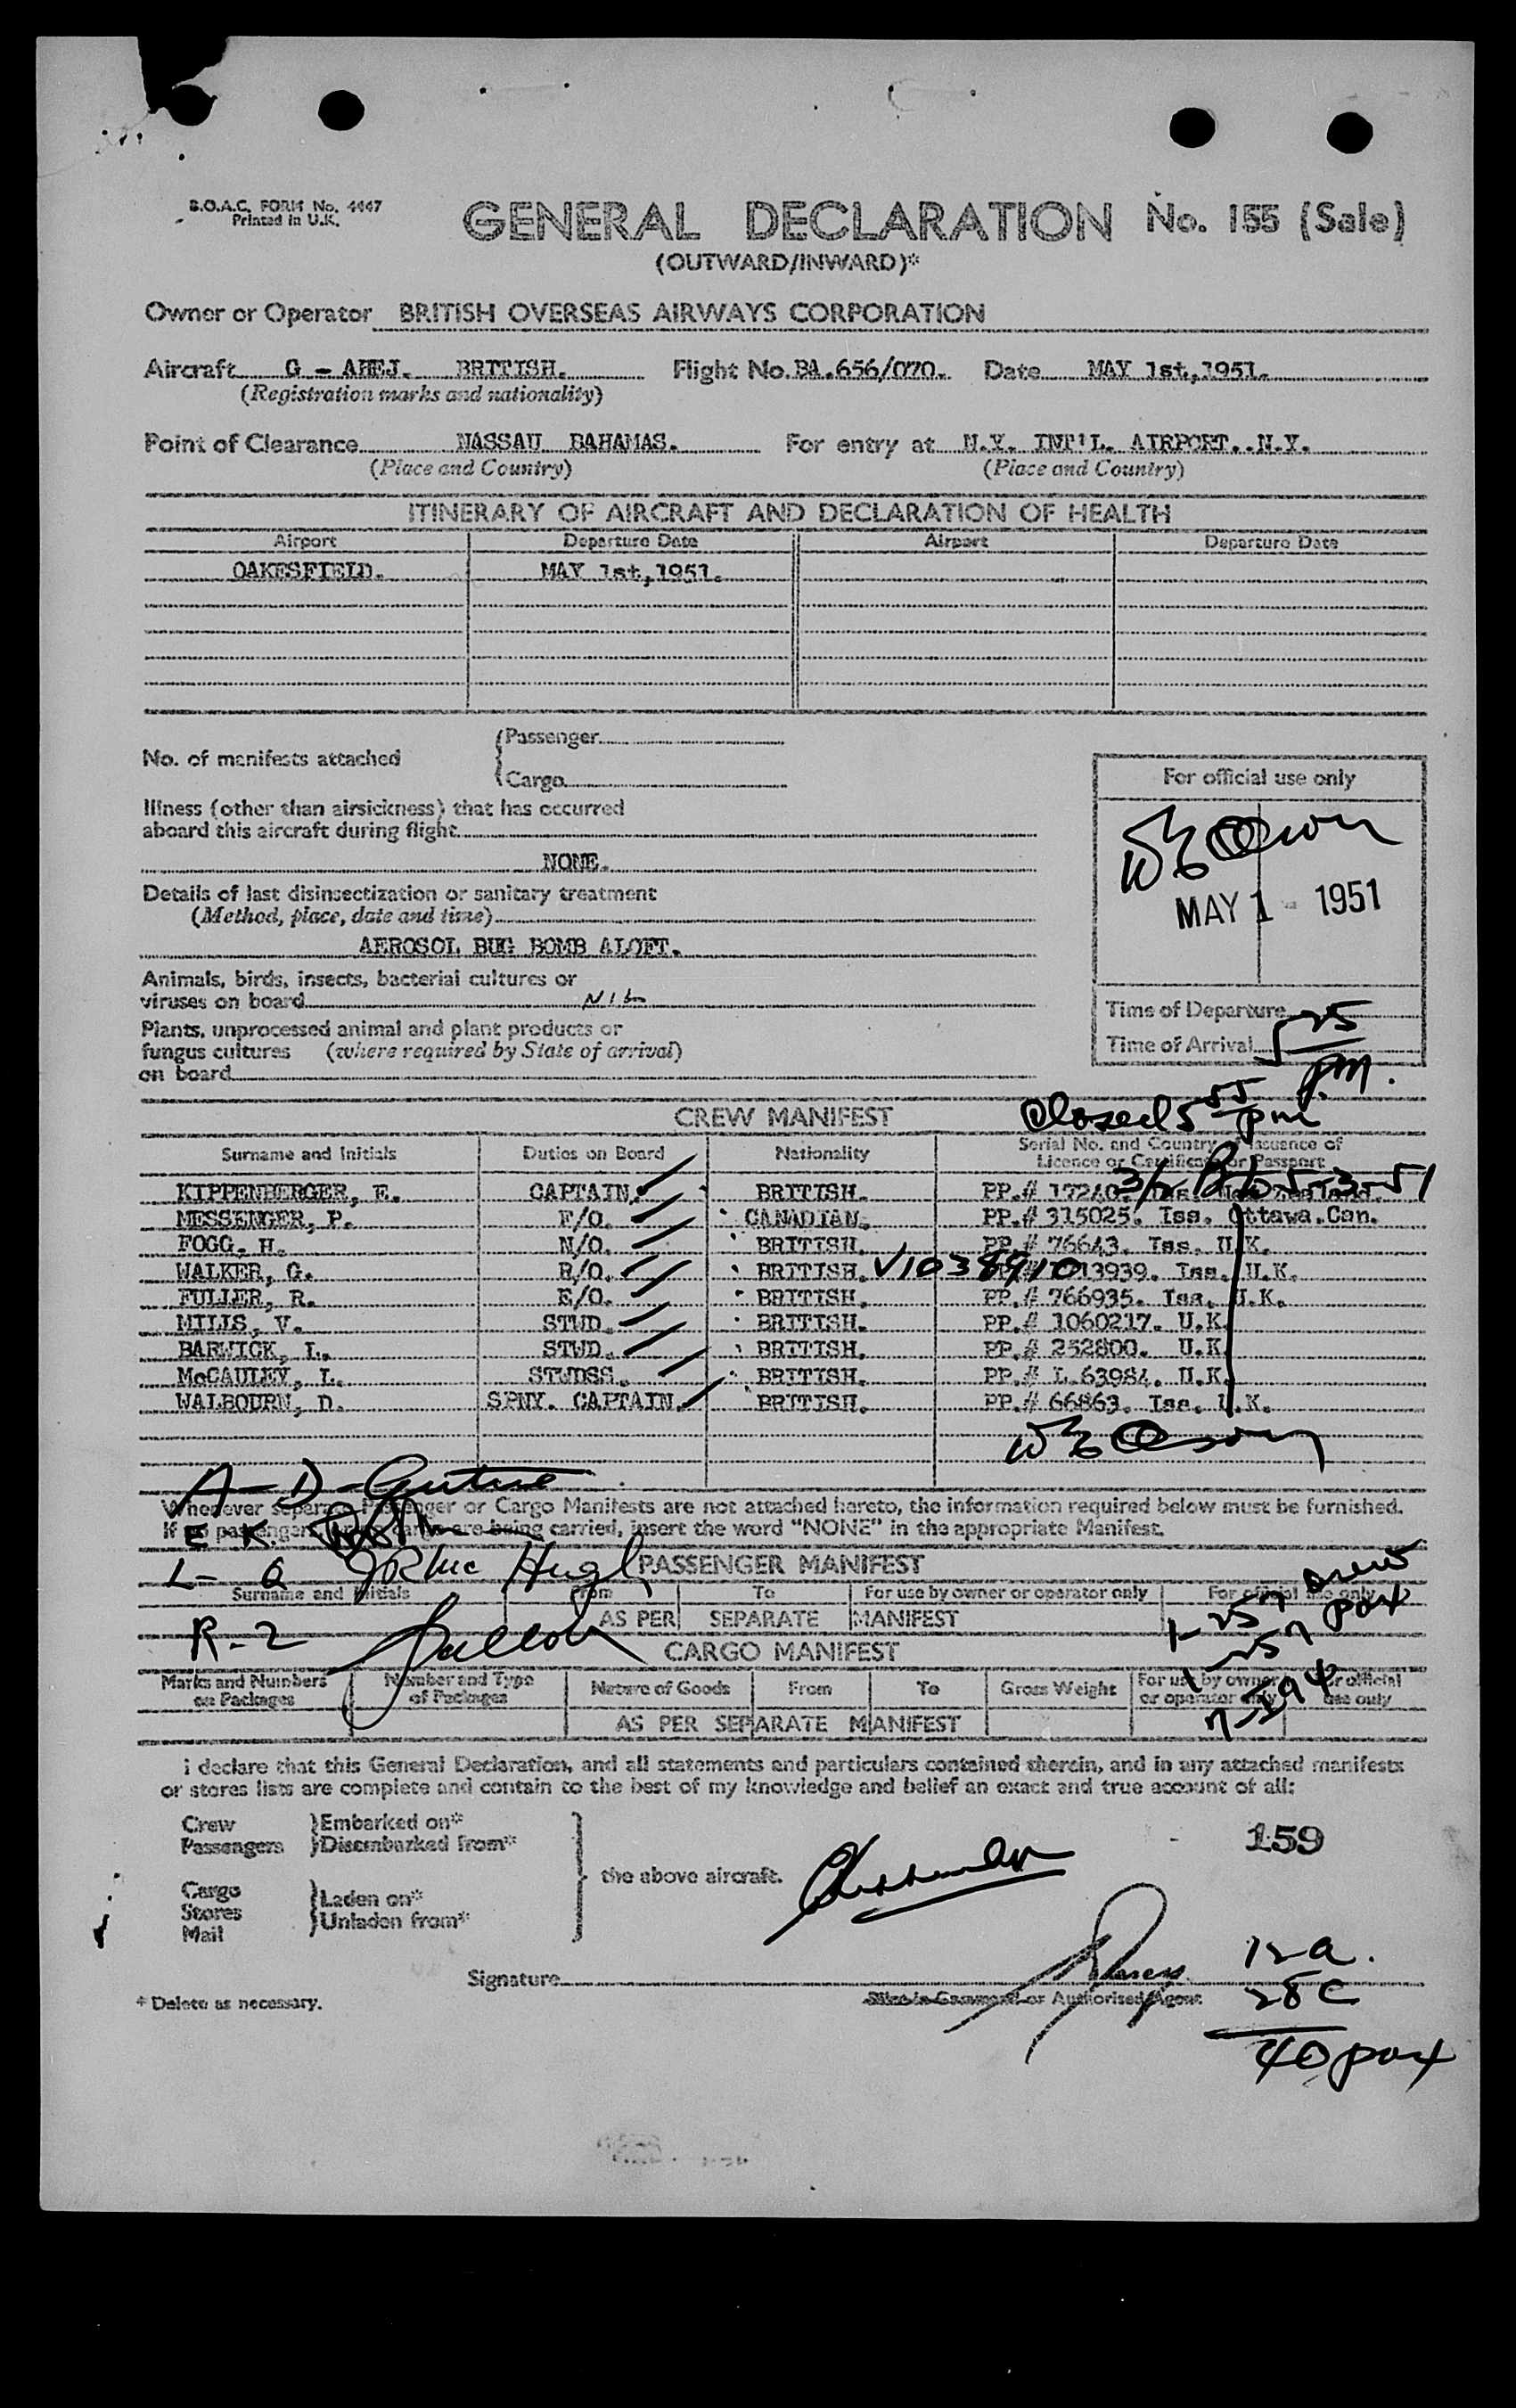 B.O.A.C. FORM No. 4447
Printed in U.K.
GENERAL DECLARATION No. 155 (Sale)
(OUTWARD/INWARD)*
Owner or Operator BRITISH OVERSEAS AIRWAYS CORPORATION
Aircraft G - AHEJ. BRITISH. Flight No. BA.656/070. Date MAY 1st,1951.
(Registration marks and nationality)
Point of Clearance NASSAU BAHAMAS. For entry at N.Y. INT'L. AIRPORT..N.Y.
(Place and Country) (Place and Country)
ITINERARY OF AIRCRAFT AND DECLARATION OF HEALTH
Airport Departure Date Airport Departure Date
OAKESFIELD. MAY 1st,1951.
No. of manifests attached
Passenger
Cargo
For official use only
Illness (other than airsickness) that has occurred
aboard this aircraft during flight
NONE.
Details of last disinsectization or sanitary treatment
(Method, place, date and time)
MAY 1 - 1951
AEROSOL BUG BOMB ALOFT.
Animals, birds, insects, bacterial cultures or
viruses on board NIL
Time of Departure
Plants, unprocessed animal and plant products or
fungus cultures (where required by State of arrival)
on board
Time of Arrival 5 25 pm.
CREW MANIFEST
Closed 5 55 pm
Surname and Initials Duties on Board Nationality Serial No. and Country of Issuance of
Licence or Certificate or Passport
KIPPENBERGER, E. CAPTAIN. BRITISH. PP.# 17240.
MESSENGER, P. F/O. CANADIAN. PP.# 315025. Iss. Ottawa.Can.
FOGG, H. N/O. BRITISH. PP.# 76643. Iss. U.K.
WALKER, G. R/O. BRITISH. V1038910 13939. Iss. U.K.
FULLER, R. E/O. BRITISH. PP.# 766935. Iss. U.K.
MILLS, V. STWD. BRITISH. PP.# 1060217. U.K.
BARWICK, L. STWD. BRITISH. PP.# 252800. U.K.
McCAULEY, L. STWDSS. BRITISH. PP.# L.63984. U.K.
WALBOURN, D. SPNY. CAPTAIN. BRITISH. PP.# 66863. Iss. U.K.
Whenever separate Passenger or Cargo Manifests are not attached hereto, the information required below must be furnished.
If no passengers or cargo are being carried, insert the word "NONE" in the appropriate Manifest.
PASSENGER MANIFEST
Surname and Initials From To For use by owner or operator only For official use only
AS PER SEPARATE MANIFEST
R-2
CARGO MANIFEST
Marks and Numbers on Packages Number and Type of Packages Nature of Goods From To Gross Weight For use by owner or operator only For official use only
AS PER SEPARATE MANIFEST
I declare that this General Declaration, and all statements and particulars contained therein, and in any attached manifests
or stores lists are complete and contain to the best of my knowledge and belief an exact and true account of all:
Crew Embarked on*
Passengers Disembarked from*
the above aircraft.
159
Cargo
Stores
Mail
Laden on*
Unladen from*
12 a.
Signature
* Delete as necessary.
Pilot in Command or Authorised Agent
28 C
40 pax